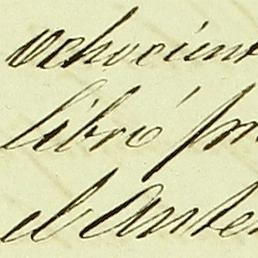 ochocient
libró pr
el Anter